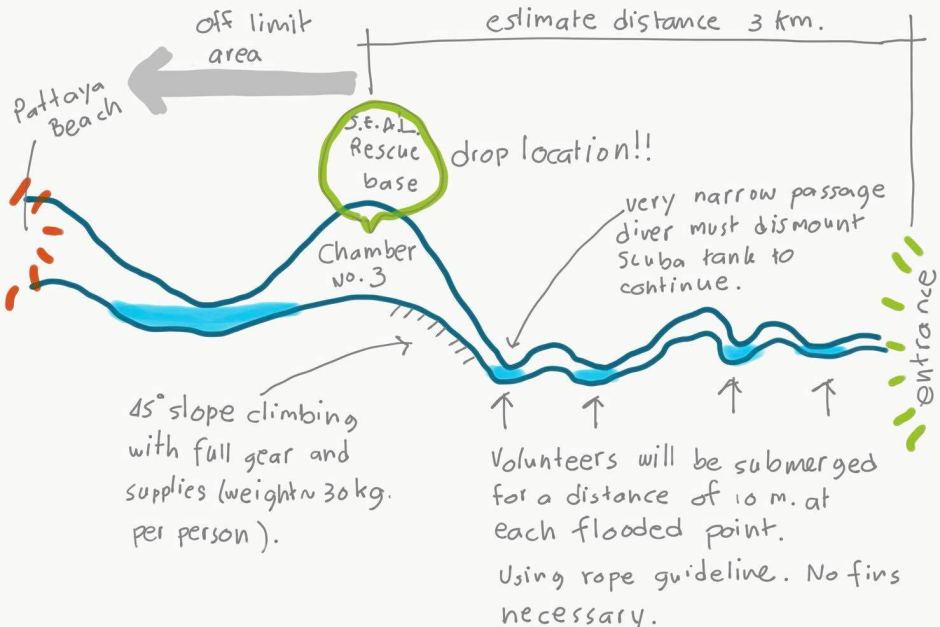 off limit
area
estimate distance 3 km.
Pattaya
Beach
S.E.A.L.
Rescue
base
drop location!!
Chamber
no.3
very narrow passage
diver must dismount
scuba tank to
continue.
entrance
45° slope climbing
with full gear and
supplies (weight ~ 30 kg.
per person).
Volunteers will be submerged
for a distance of 10 m. at
each flooded point.
Using rope guideline. No fins
necessary.